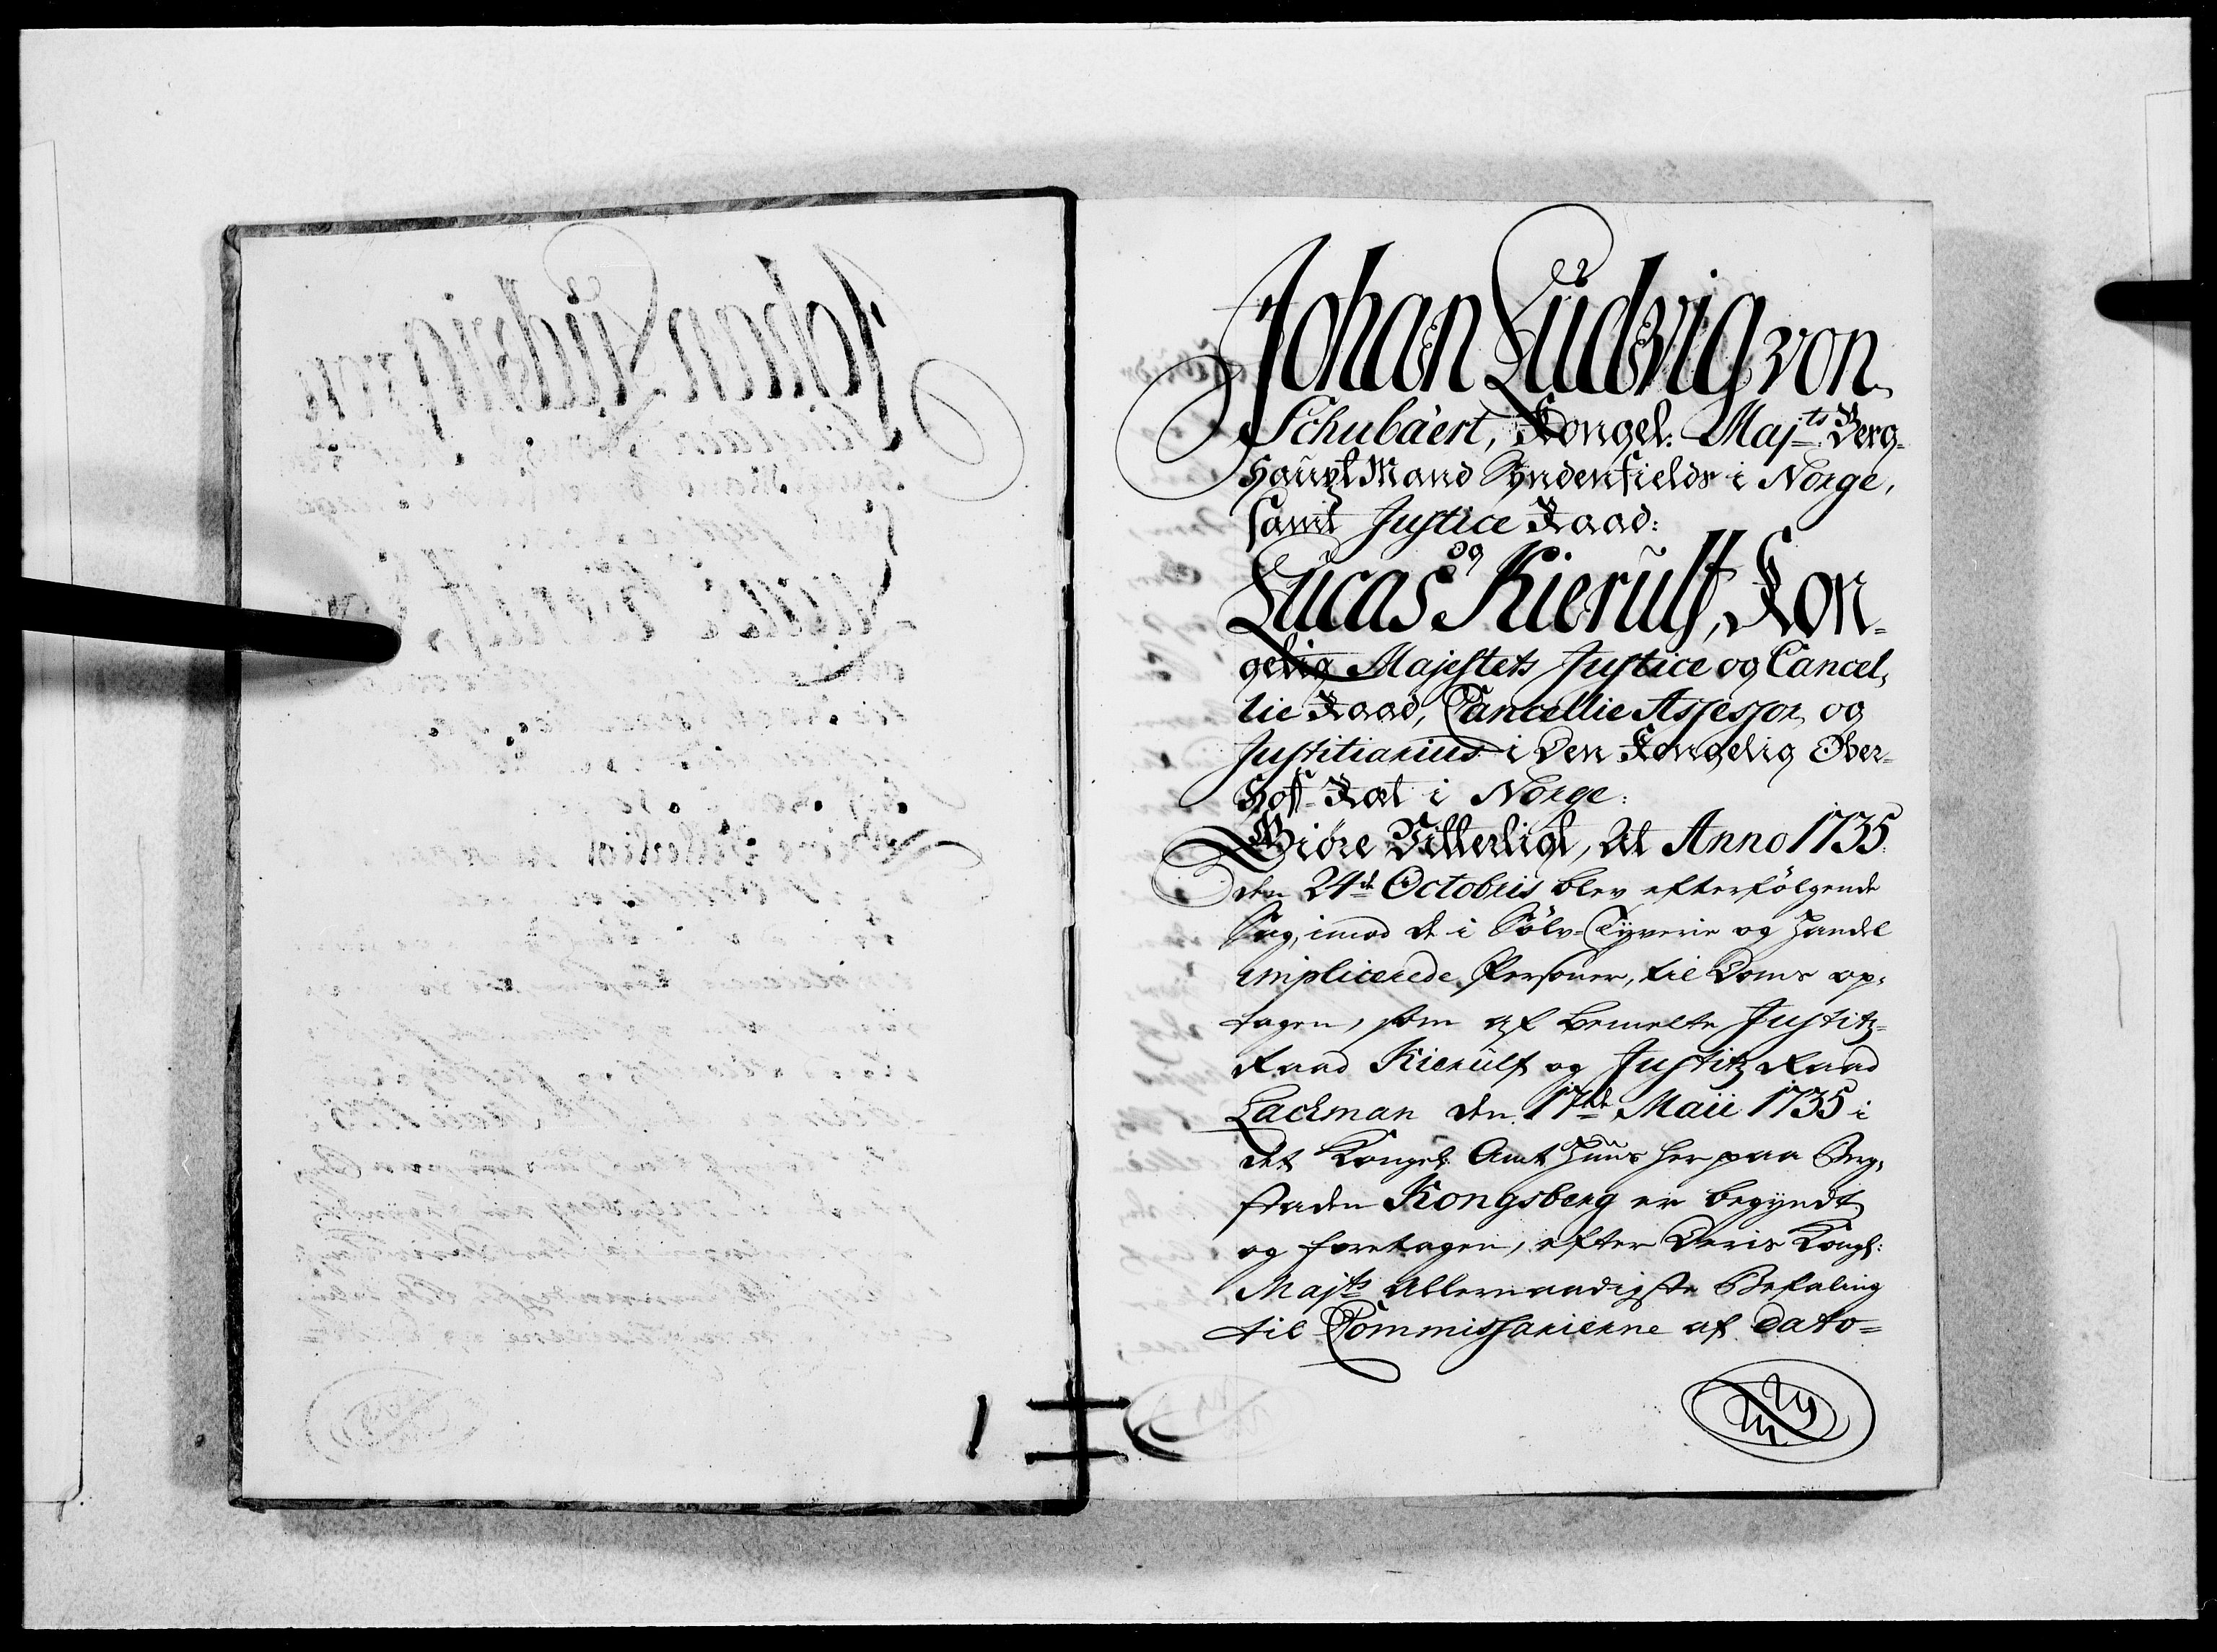 Johan Ludvig von
Schubaert, Kongel: Maj<sup>ts</sup> Berg-
HauptMand Syndenfields i Norge,
samt Justice Raad:
og
Lucas Kierulf, Kon-
gelig Majestets Justice og Cancel,
lie Raad, Cancellie Assessor, og
Justitiarius i Den Kongelig Ober-
Hoff-Ræt i Norge:
Giøre Vitterligt, At Anno 1735
den 24de Octobris blev efterfölgende
Sag, imod de i Sölv-Tyverie og Handel
implicerede Persohner, til Doms op-
tagen, som af bemelte Justitz-
Raad Kierulf og Justitz Raad
Lachman den 17de Maii 1735 i
det Kongel: Amt Huus her paa Berg,
staden Kongsberg er begyndt
og foretagen, efter Deris Kongl:
Majts Allernaadigste Befaling
til Commissarierne af Dato=
1